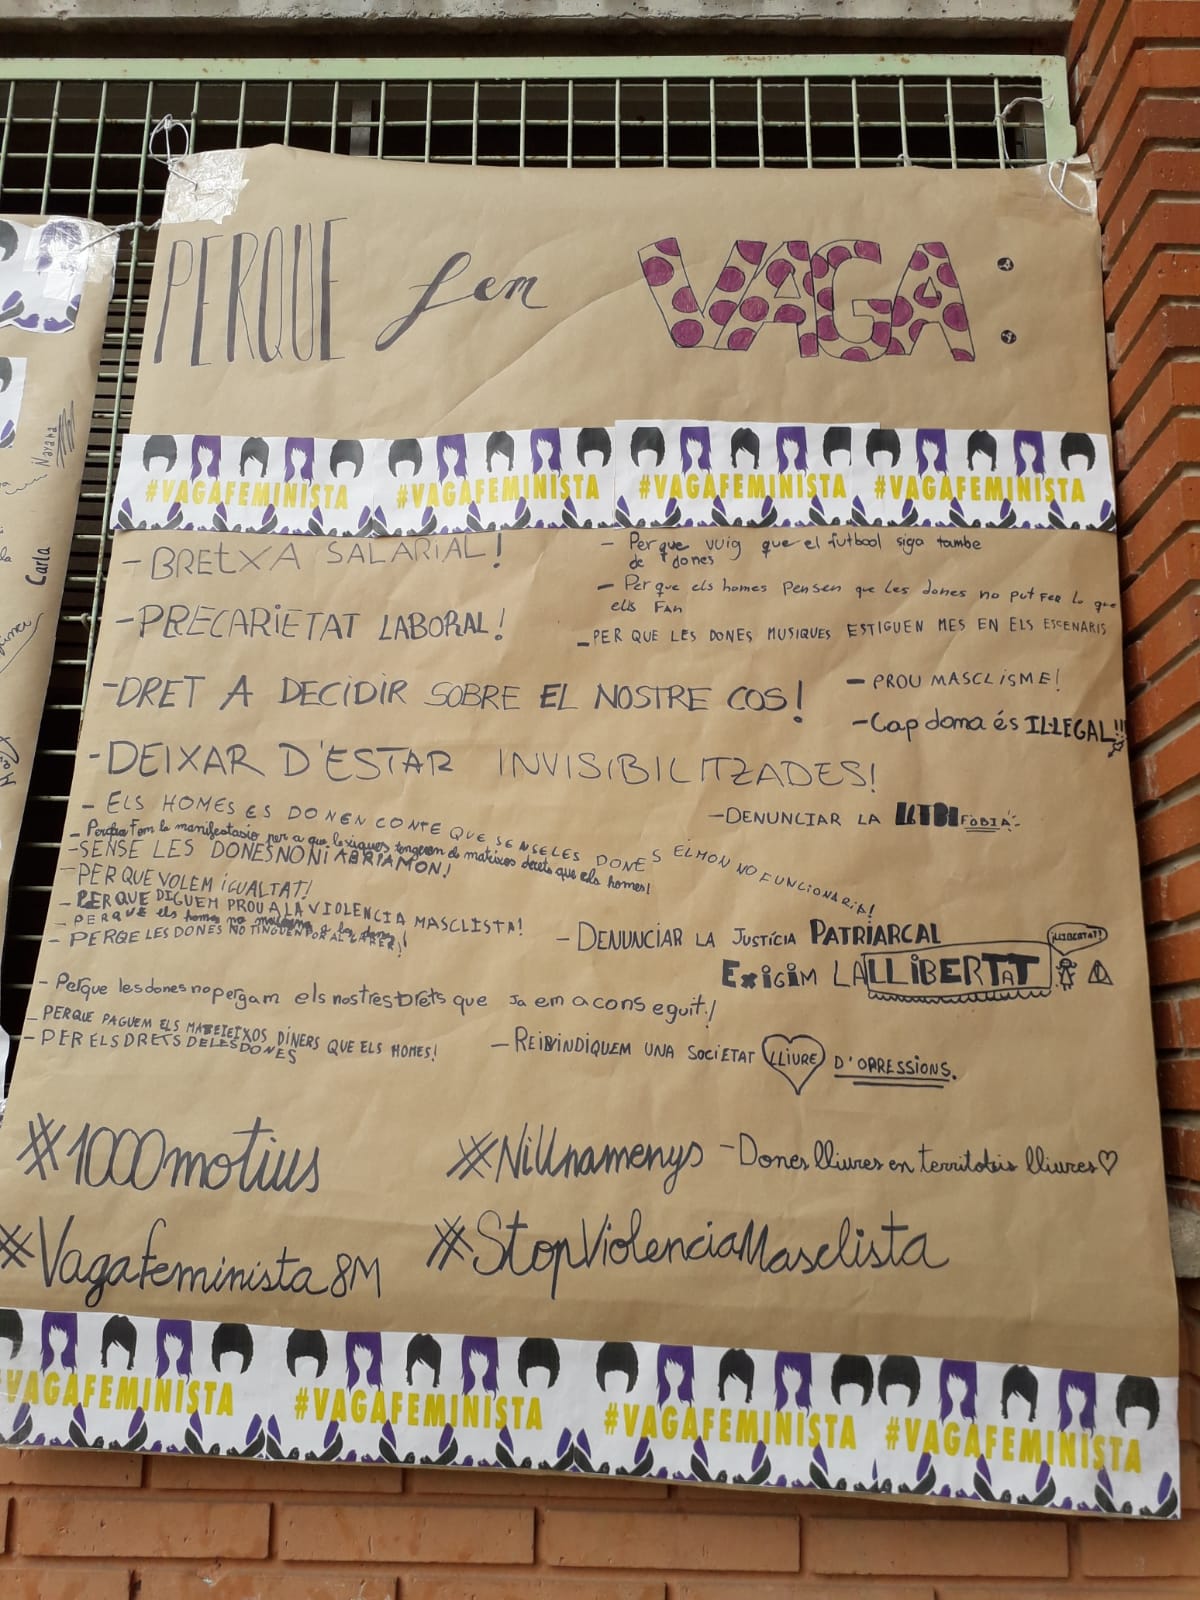 PERQUE fem VAGA:
#VAGAFEMINISTA #VAGAFEMINISTA #VAGAFEMINISTA #VAGAFEMINISTA
- BRETXA SALARIAL!
- PRECARIETAT LABORAL!
- DRET A DECIDIR SOBRE EL NOSTRE COS!
- DEIXAR D'ESTAR INVISIBILITZADES!
- Per que vuig que el futbool siga tambe
de dones
- Per que els homes pensen que les dones no put fer lo que
ells fan
- PER QUE LES DONES MUSIQUES ESTIGUEN MES EN ELS ESCENARIS
- PROU MASCLISME!
- Cap dona és IL·LEGAL!!
- DENUNCIAR LA LGTBIFÒBIA!
- ELS HOMES ES DONEN CONTE QUE SENSELES DONES EL MON NO FUNCIONARIA!
- Perque fem la manifestasio per a que les xiques tengen els mateixos drets que els homes!
- SENSE LES DONES NO NI ABRIA MON!
- PER QUE VOLEM IGUALTAT!
- PER QUE DIGUEM PROU A LA VIOLENCIA MASCLISTA!
- PERQUE els homes no a la dona!
- PERQE LES DONES NO TINGUEN POR AL CARRER!
- DENUNCIAR LA JUSTÍCIA PATRIARCAL
EXIGIM LA LLIBERTAT
¡LLIBERTAT!
- Perque lesdones no pergam els nostres Drets que Ja em aconseguit!
- PERQUE PAGUEM ELS MATEIEIXOS DINERS QUE ELS HOMES!
- PER ELS DRETS DE LES DONES
- REIBINDIQUEM UNA SOCIETAT LLIURE D'OPRESSIONS.
#1000motius
#NiUnamenys - Dones lliures en territoris lliures ♡
#VagaFeminista 8M
#StopViolenciaMasclista
#VAGAFEMINISTA #VAGAFEMINISTA #VAGAFEMINISTA #VAGAFEMINISTA
Nayara
Carla